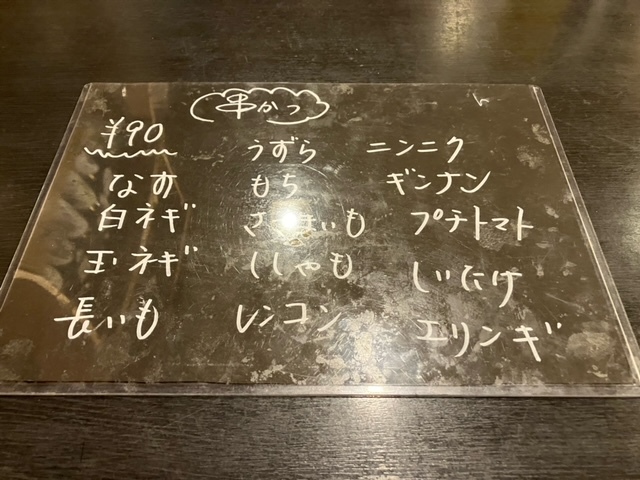 串かつ
¥90
なす
白ネギ
玉ネギ
長いも
うずら
もち
さつまいも
ししゃも
レンコン
ニンニク
ギンナン
プチトマト
しいたけ
エリンギ